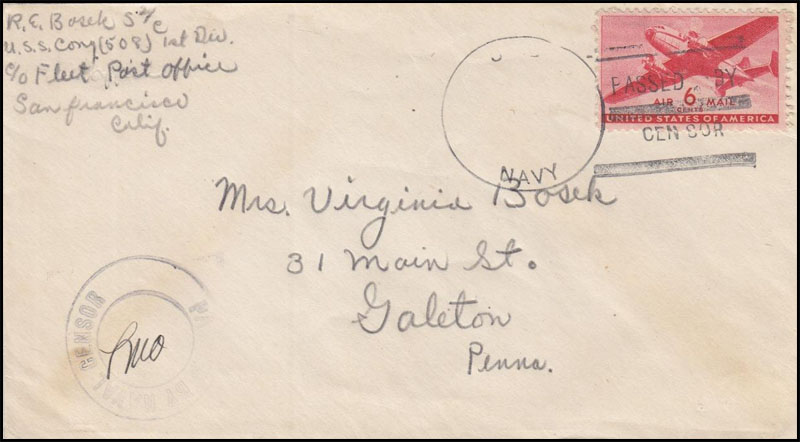 R.E. Bosek S 2/c
U.S.S. Cony (508) 1st Div.
c/o Fleet Post Office
San francisco
Calif.
PASSED BY
AIR 6 MAIL
CENTS
UNITED STATES OF AMERICA
CENSOR
NAVY
Mrs. Virginia Bosek
31 Main St.
Galeton
Penna.
BY NAVAL CENSOR